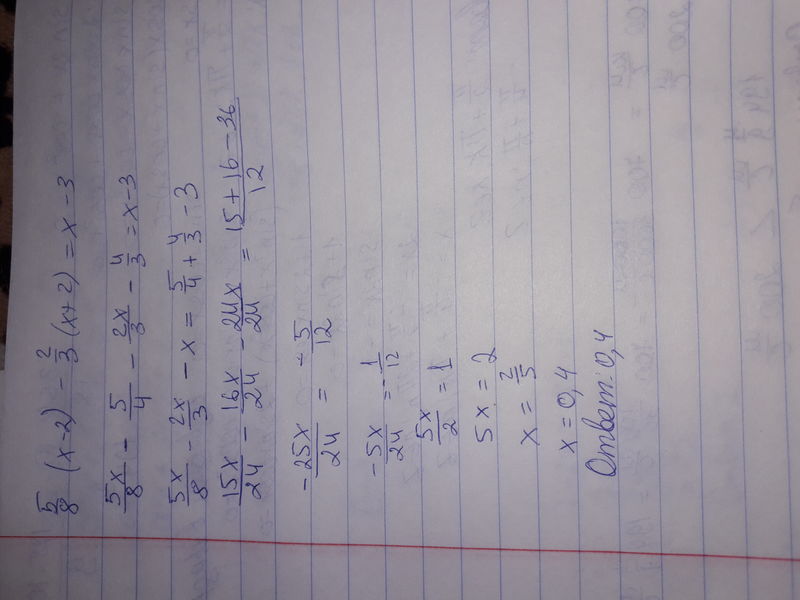 5/8 (x-2) - 2/3 (x+2) = x-3
5x/8 - 5/4 - 2x/3 - 4/3 = x-3
5x/8 - 2x/3 - x = 5/4 + 4/3 - 3
15x/24 - 16x/24 - 24x/24 = 15+16-36/12
-25x/24 = -5/12
-5x/24 = -1/12
5x/2 = 1
5x = 2
x = 2/5
x = 0,4
Ответ: 0,4